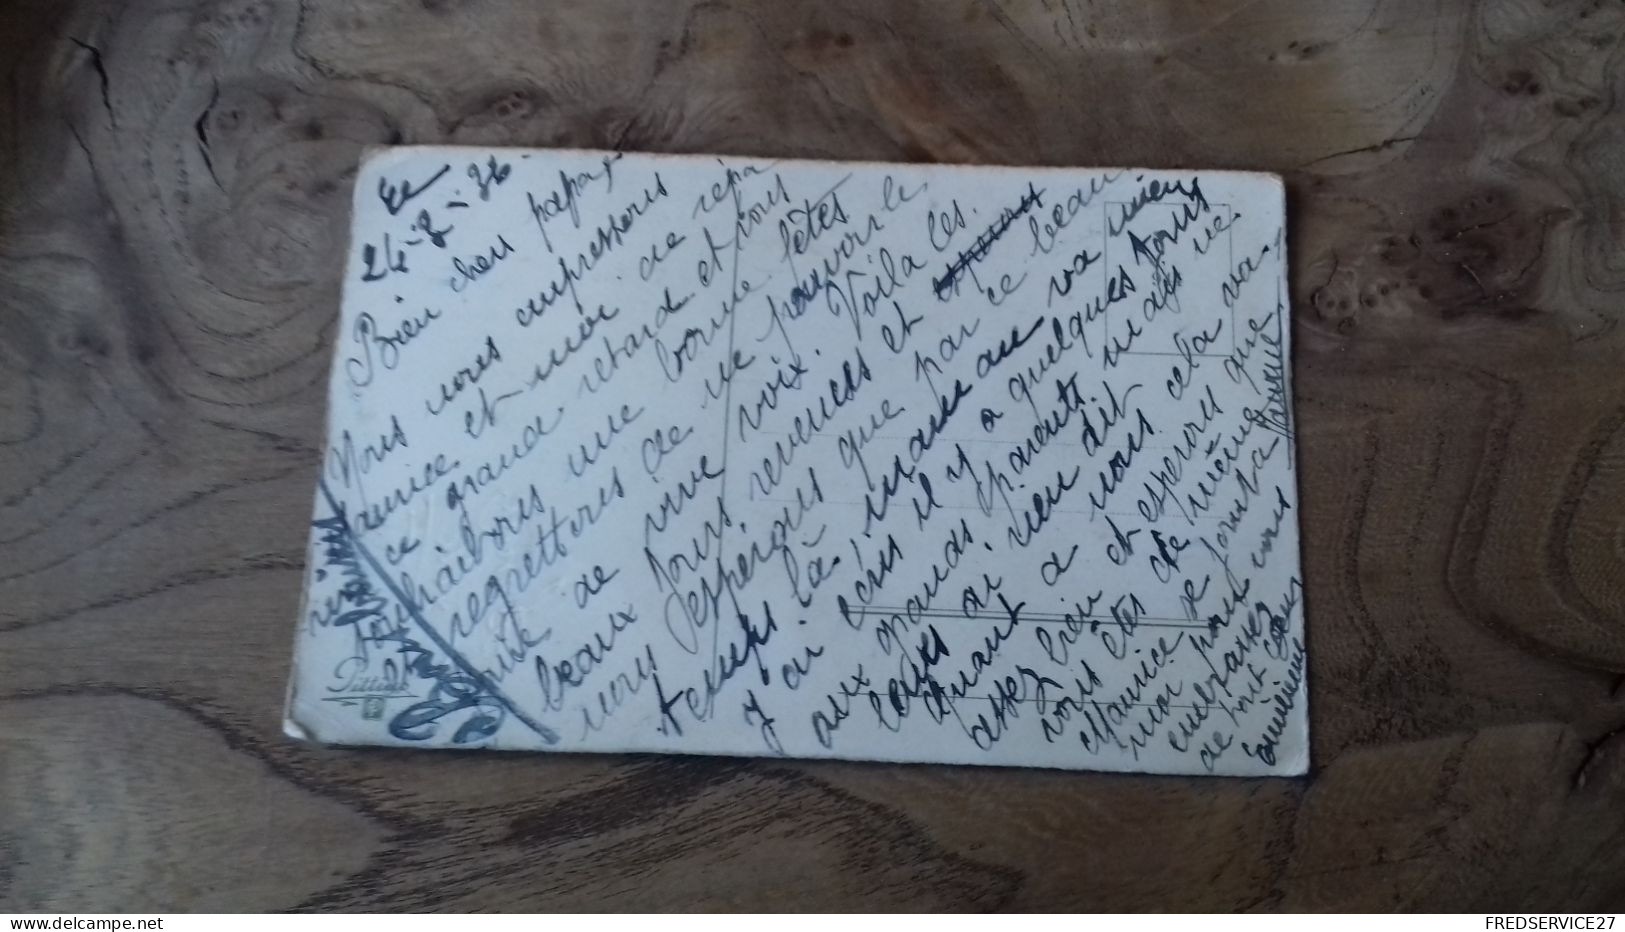 Le
24-2-36
Bien cher papa
Nous nous empressons
Maurice et moi de répa
ce grand retard et vous
souhaitons une bonne fêtes
et regrettons de ne pouvoir le
faire de vive voix. Voilà les
beaux jours revenues et
nous espérons que par ce beau
temps là maman va mieux
J'ai écris il y a quelques jours
aux grands parents mais ne
leurs ai rien dit
quant a nous cela va
assez bien et espérons que
vous êtes de même
Maurice se joint a
moi pour vous
embrassez
de tout cœur
FREDSERVICE27